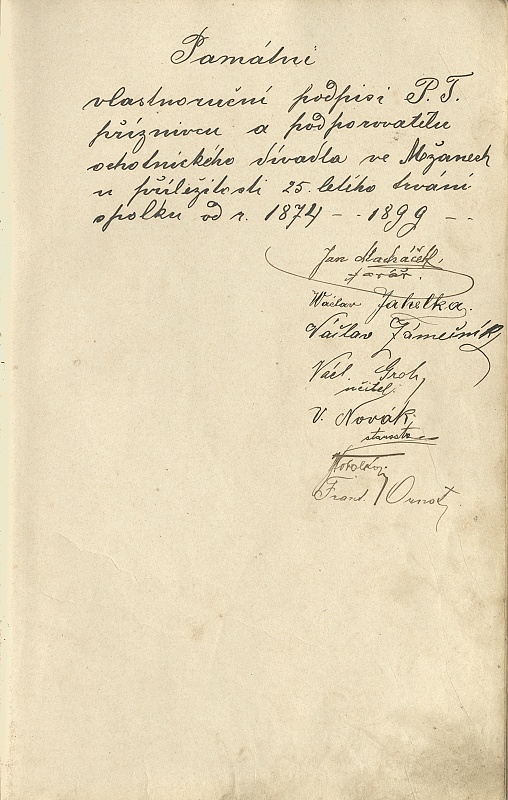 Památní
vlastnoruční podpisi P. T.
příznivcu a podporovatelu
ochotnického divadla ve Mžanech
u příležitosti 25. letího trvání
spolku od r. 1874 – - 1899 – -
Jan Macháček,
farář.
Václav Jahelka.
Václav Zámečník
Václ. Groh
učitel.
V. Novák.
starosta
Frant.